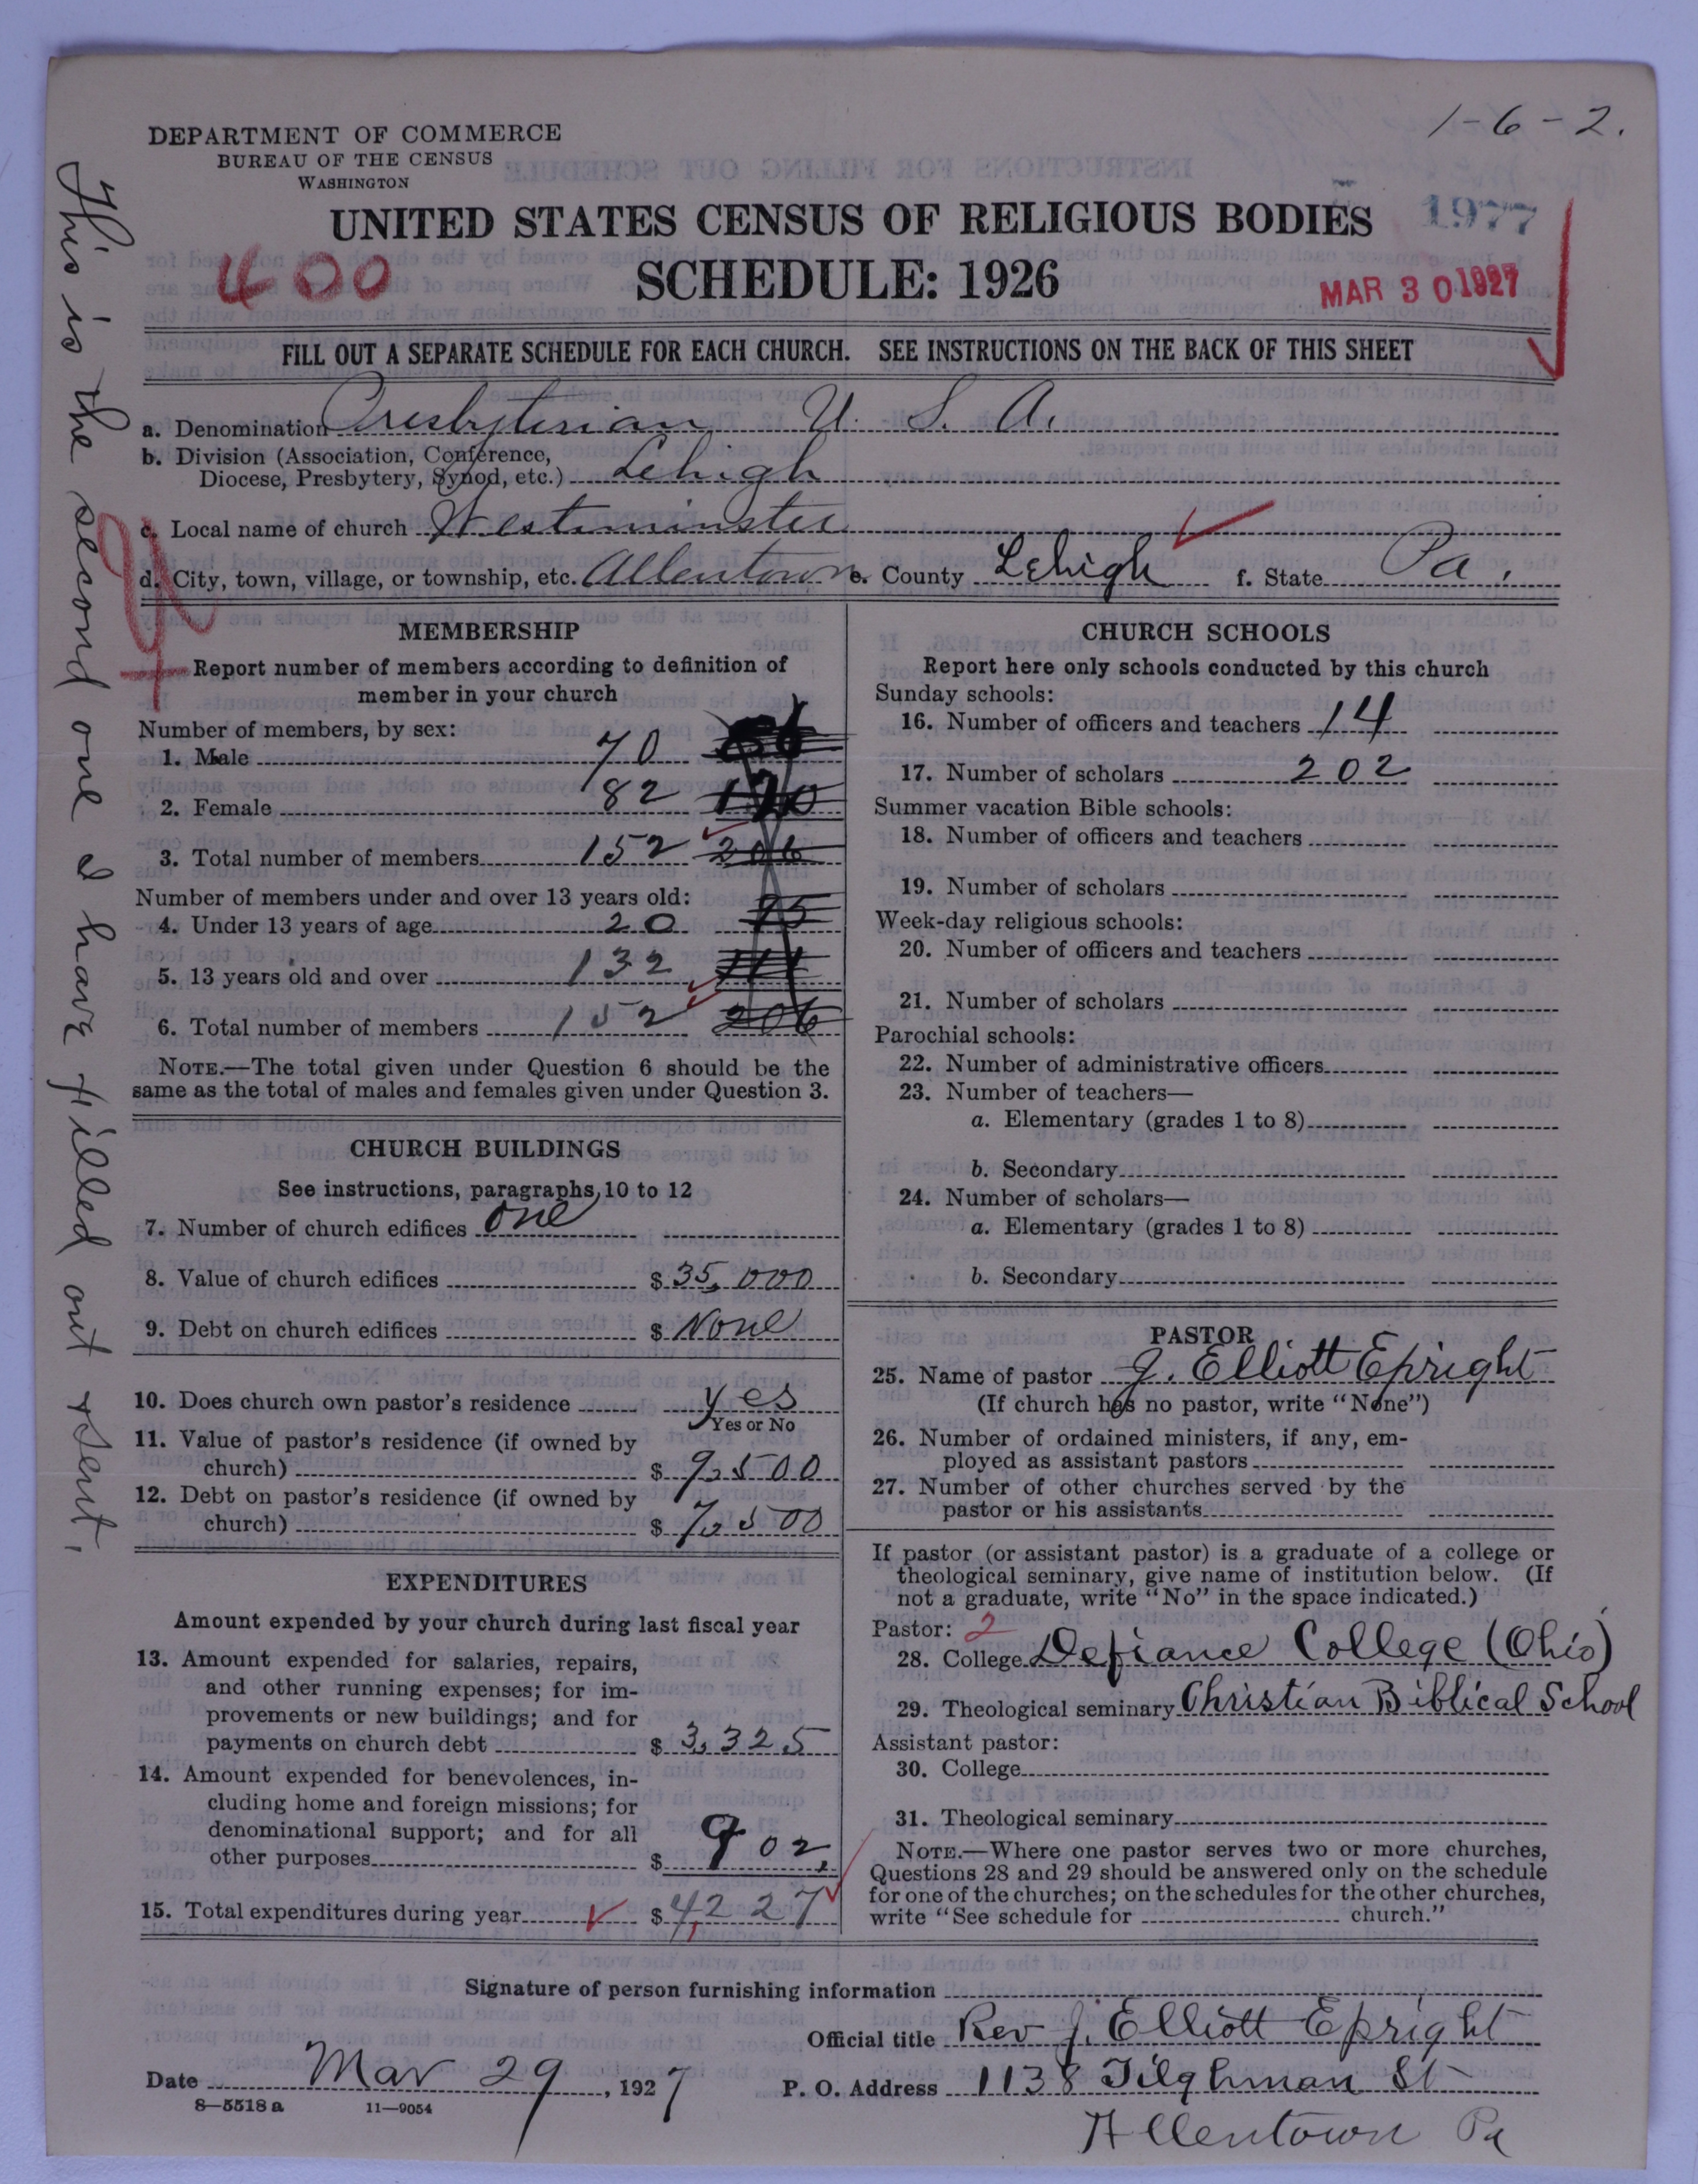 1-6-2.
DEPARTMENT OF COMMERCE
BUREAU OF THE CENSUS
WASHINGTON
1977
UNITED STATES CENSUS OF RELIGIOUS BODIES
400
SCHEDULE: 1926
MAR 30 1927
FILL OUT A SEPARATE SCHEDULE FOR EACH CHURCH. SEE INSTRUCTIONS ON THE BACK OF THIS SHEET
a. Denomination Presbyterian U. S. A.
b. Division (Association, Conference,
Diocese, Presbytery, Synod, etc.) Lehigh
c. Local name of church Westminster
d. City, town, village, or township, etc. Allentown e. County Lehigh f. State Pa.
This is the second one I have filled out & sent.
MEMBERSHIP
Report number of members according to definition of
member in your church
Number of members, by sex:
1. Male 70
2. Female 82
3. Total number of members 152 206
Number of members under and over 13 years old:
4. Under 13 years of age 20
5. 13 years old and over 132
6. Total number of members 152 206
NOTE.—The total given under Question 6 should be the
same as the total of males and females given under Question 3.
CHURCH BUILDINGS
See instructions, paragraphs 10 to 12
7. Number of church edifices One
8. Value of church edifices $ 35,000
9. Debt on church edifices $ None
10. Does church own pastor's residence yes
Yes or No
11. Value of pastor's residence (if owned by
church) $ 9,500
12. Debt on pastor's residence (if owned by
church) $ 7,500
EXPENDITURES
Amount expended by your church during last fiscal year
13. Amount expended for salaries, repairs,
and other running expenses; for im-
provements or new buildings; and for
payments on church debt $ 3,325
14. Amount expended for benevolences, in-
cluding home and foreign missions; for
denominational support; and for all
other purposes $ 902
15. Total expenditures during year $ 4,227
CHURCH SCHOOLS
Report here only schools conducted by this church
Sunday schools:
16. Number of officers and teachers 14
17. Number of scholars 202
Summer vacation Bible schools:
18. Number of officers and teachers
19. Number of scholars
Week-day religious schools:
20. Number of officers and teachers
21. Number of scholars
Parochial schools:
22. Number of administrative officers
23. Number of teachers—
a. Elementary (grades 1 to 8)
b. Secondary
24. Number of scholars—
a. Elementary (grades 1 to 8)
b. Secondary
PASTOR
25. Name of pastor J. Elliott Epright
(If church has no pastor, write "None")
26. Number of ordained ministers, if any, em-
ployed as assistant pastors
27. Number of other churches served by the
pastor or his assistants
If pastor (or assistant pastor) is a graduate of a college or
theological seminary, give name of institution below. (If
not a graduate, write "No" in the space indicated.)
Pastor: 2
28. College Defiance College (Ohio)
29. Theological seminary Christian Biblical School
Assistant pastor:
30. College
31. Theological seminary
NOTE.—Where one pastor serves two or more churches,
Questions 28 and 29 should be answered only on the schedule
for one of the churches; on the schedules for the other churches,
write "See schedule for church."
Signature of person furnishing information
Official title Rev J. Elliott Epright
Date Mar 29, 1927 P. O. Address 1138 Tilghman St
8—5518 a 11—9054
Allentown Pa